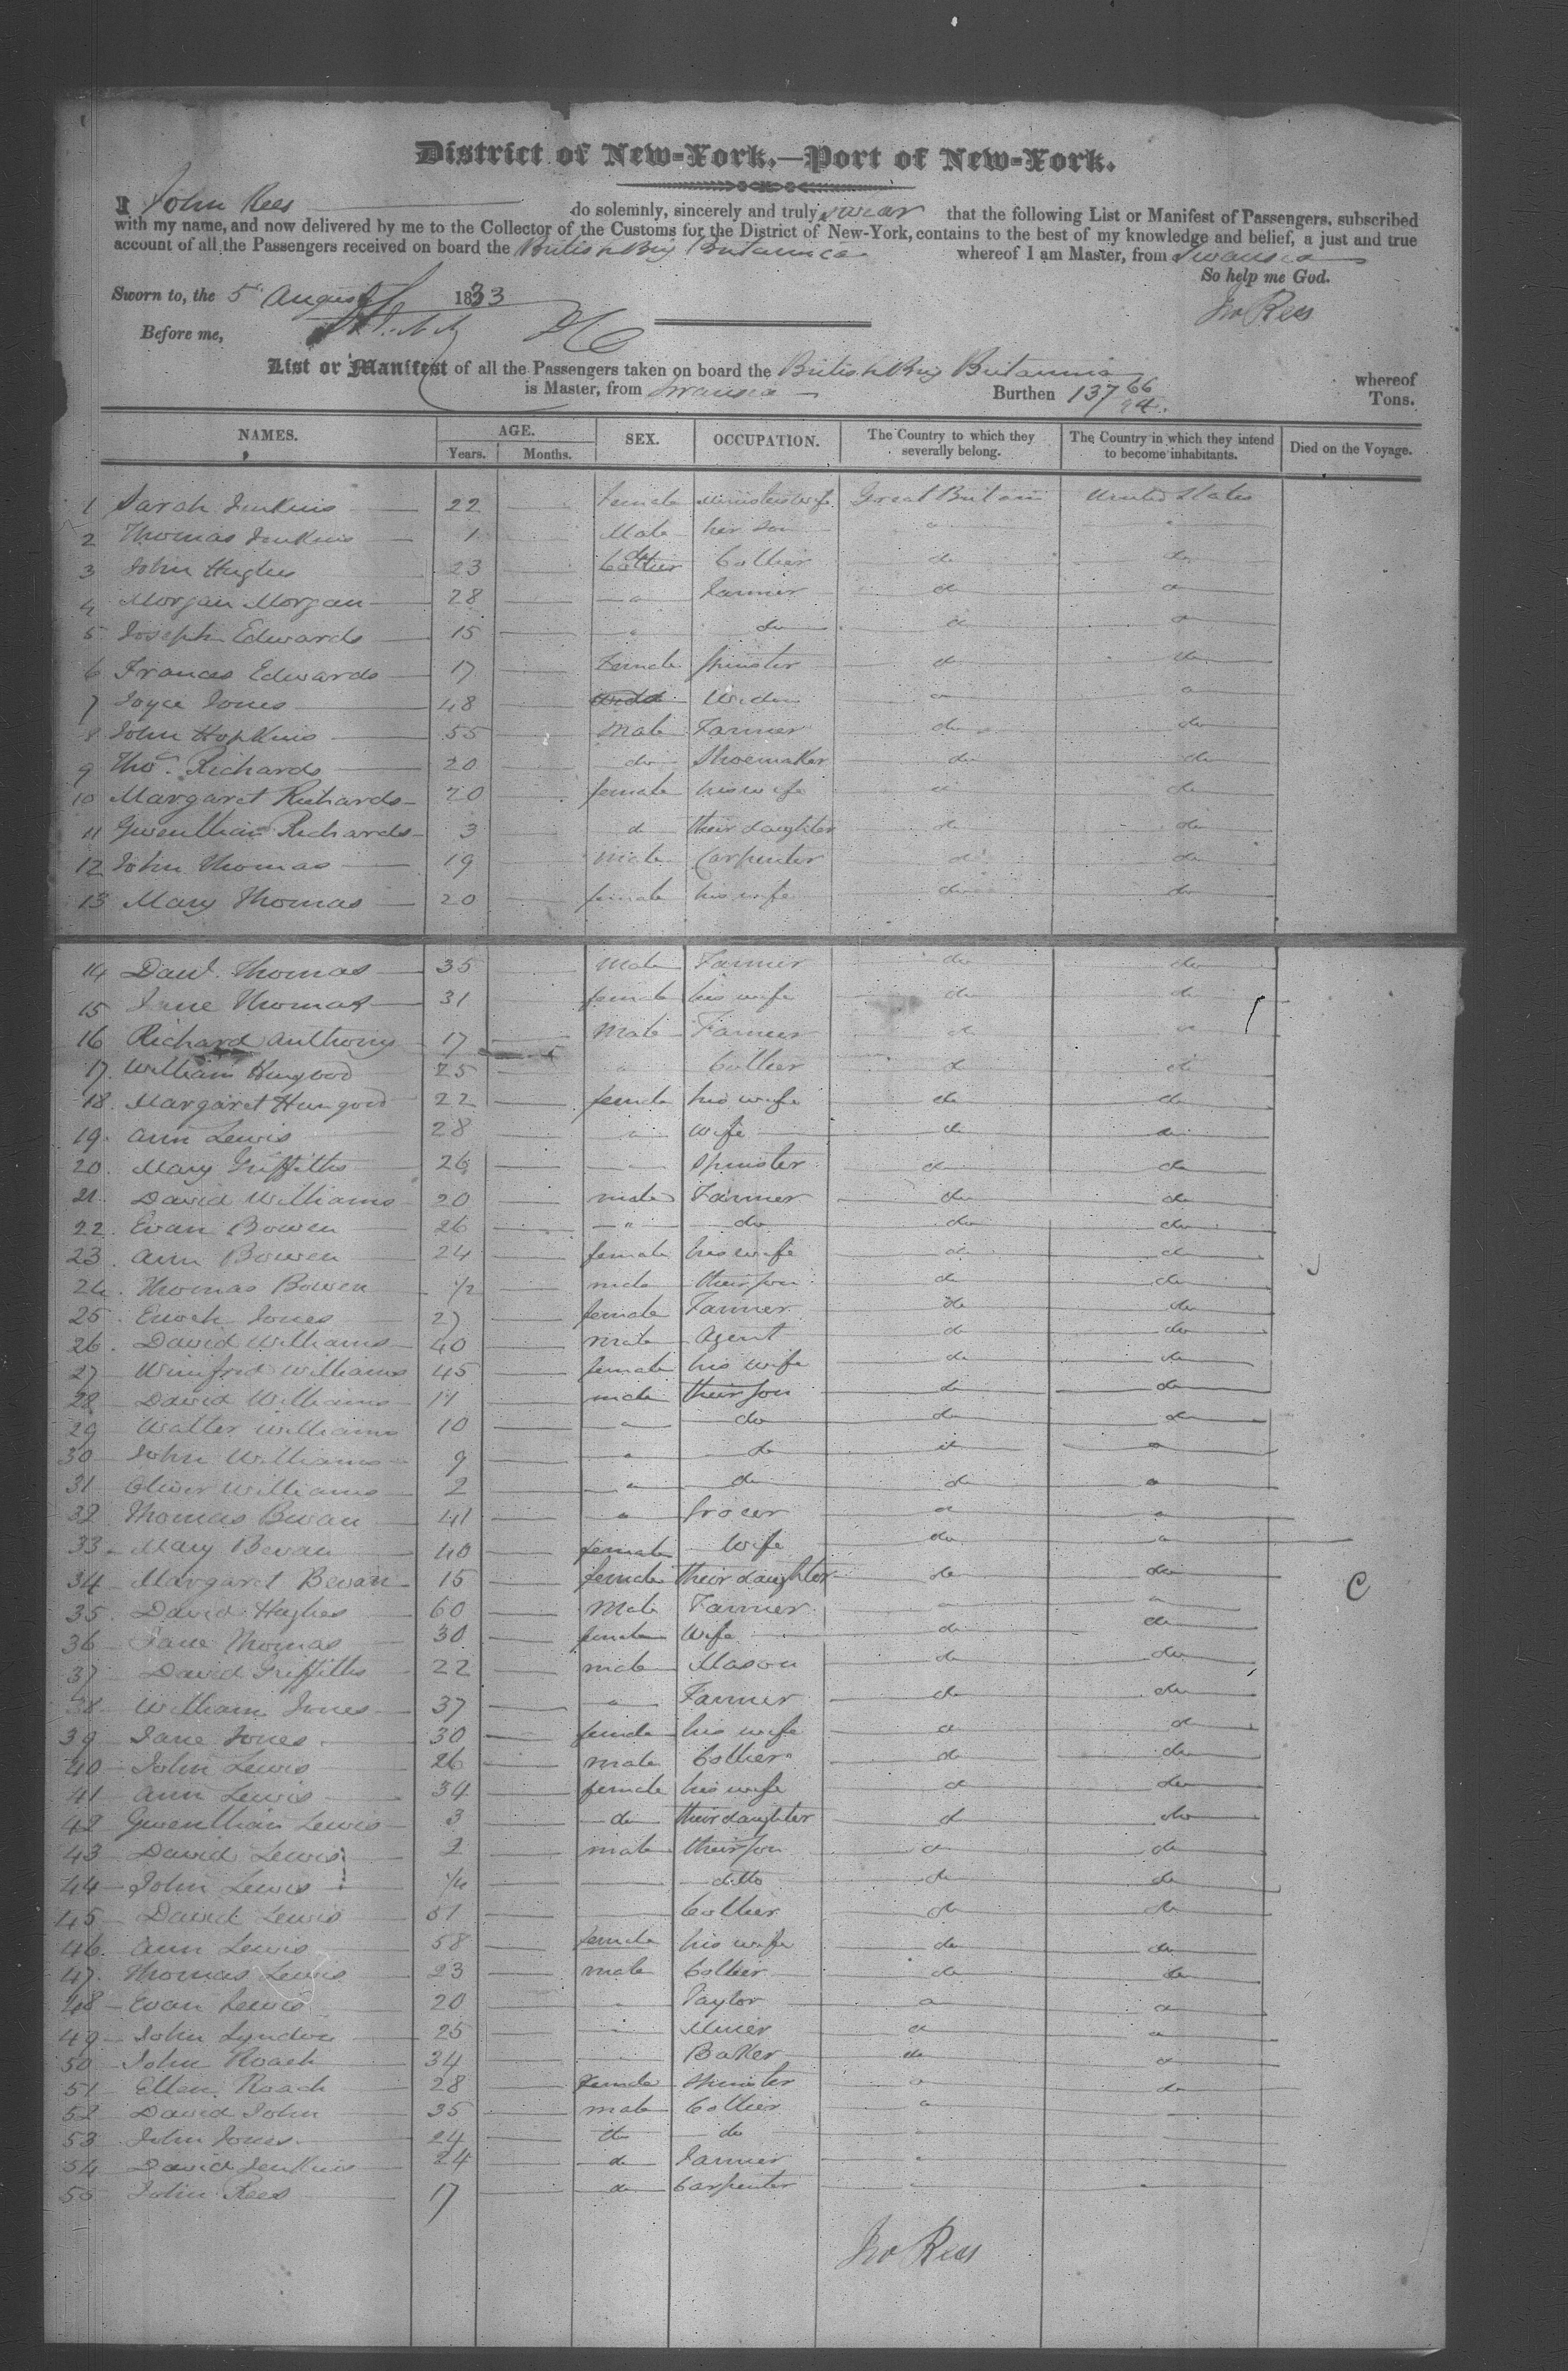 District of New-York,—Port of New-York.
I John Rees do solemnly, sincerely and truly swear that the following List or Manifest of Passengers, subscribed
with my name, and now delivered by me to the Collector of the Customs for the District of New-York, contains to the best of my knowledge and belief, a just and true
account of all the Passengers received on board the British Brig Britannia whereof I am Master, from Swansea
So help me God.
Sworn to, the 5 August 1833
Jno Rees
Before me,
List or Manifest of all the Passengers taken on board the British Brig Britannia whereof
is Master, from Swansea Burthen 137 66/94 Tons.
NAMES. AGE. Years. Months. SEX. OCCUPATION. The Country to which they severally belong. The Country in which they intend to become inhabitants. Died on the Voyage.
1 Sarah Jenkins 22 female Ministers wife Great Britain United States
2 Thomas Jenkins 1 Male her son " "
3 John Hughes 23 Collier do Collier do do
4 Morgan Morgan 28 " Farmer do do
5 Joseph Edwards 15 " do do do
6 Frances Edwards 17 Female Spinster do do
7 Joyce Jones 48 Widow do do
8 John Hopkins 55 Male Farmer do do
9 Thos. Richards 20 do Shoemaker do do
10 Margaret Richards 20 female his wife do do
11 Gwenllian Richards 3 do their daughter do do
12 John Thomas 19 male Carpenter do do
13 Mary Thomas 20 female his wife do do
14 Davd. Thomas 35 Male Farmer do do
15 Jane Thomas 31 female his wife do do
16 Richard Anthony 17 Male Farmer do do
17. William 25 " Collier do do
18. Margaret 22 female his wife do do
19. Ann Lewis 28 " Wife do do
20. Mary Griffiths 26 " Spinster do do
21. David Williams 20 male Farmer do do
22. Evan Bowen 26 " do do do
23. Ann Bowen 24 female his wife do do
24. Thomas Bowen 1/2 male their son do do
25. Enoch Jones 27 female Farmer do do
26. David Williams 40 male Agent do do
27 Winifred Williams 45 female his wife do do
28 David Williams 11 male their son do do
29 Walter Williams 10 " do do do
30 John Williams 9 " do do do
31 Oliver Williams 2 " do do do
32 Thomas Bevan 41 " Grocer do do
33 Mary Bevan 40 female Wife do do
34 Margaret Bevan 15 female their daughter do do
C
35. David Hughes 60 Male Farmer do do
36 Jane Thomas 30 female Wife do do
37 David Griffiths 22 male Mason do do
38 William Jones 37 " Farmer do do
39 Jane Jones 30 female his wife do do
40 John Lewis 26 male Collier do do
41 Ann Lewis 34 female his wife do do
42 Gwenllian Lewis 3 do their daughter do do
43 David Lewis 2 male their son do do
44 John Lewis 1/4 ditto do do
45 David Lewis 61 Collier do do
46. Ann Lewis 58 female his wife do do
47. Thomas Lewis 23 male Collier do do
48 Evan Lewis 20 " Taylor do do
49 John 25 " Miner do do
50 John Roach 34 " Baker do do
51 Ellen Roach 28 female Spinster do do
52 David John 35 male Collier do
53 John Jones 24 do do
54 David Jenkins 24 do Farmer
55 John Rees 17 do Carpenter
Jno Rees